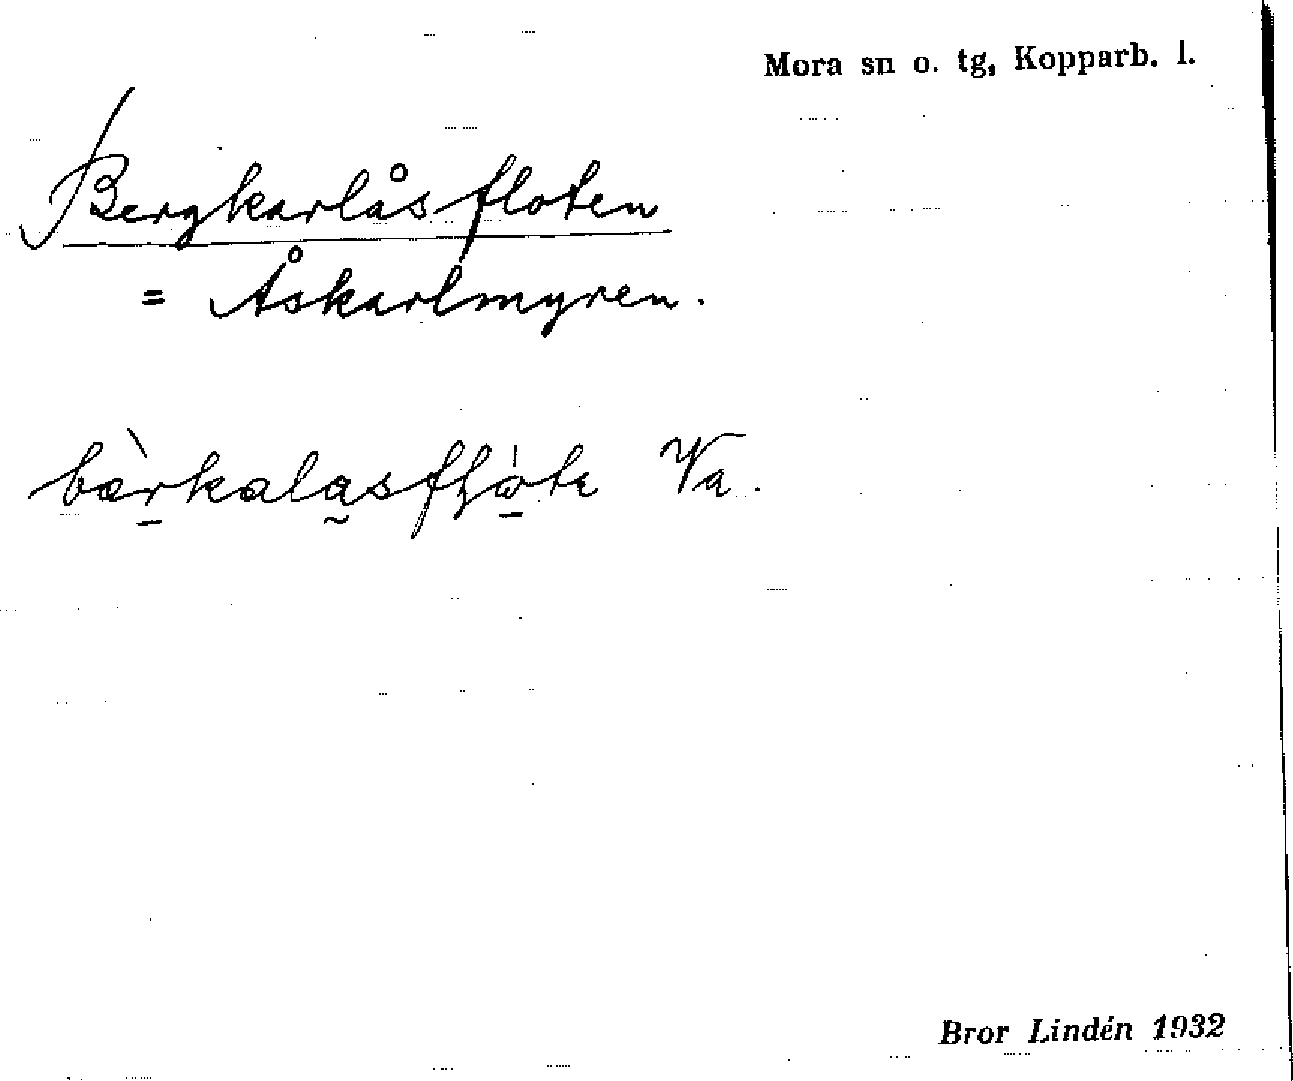 Mora sn o. tg, Kopparb. l.
Bergkarlåsfloten
= Åskarlmyren.
bæ̀rkalasflɷ́te Va.
Bror Lindén 1932